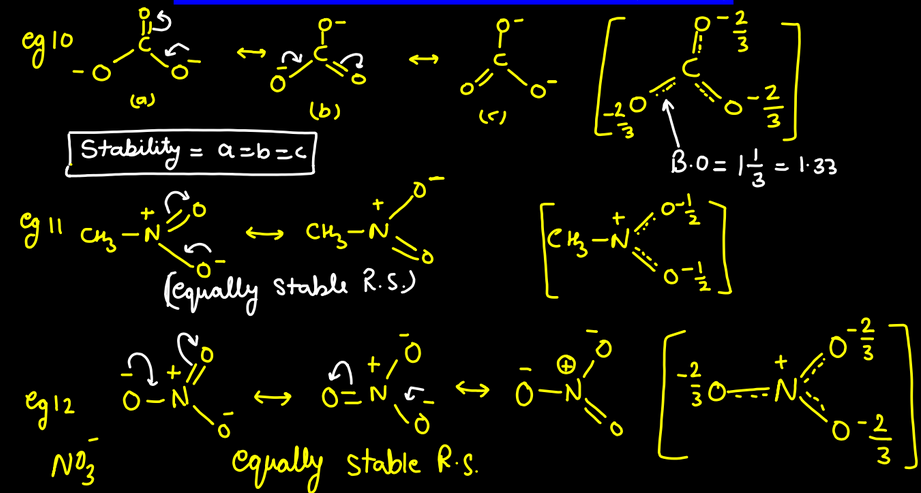 eg 10
O
C
⁻O
O⁻
(a)
↔
O⁻
C
O⁻
O
(b)
↔
O⁻
C
O
O⁻
(c)
O -2/3
C
-2/3 O
O -2/3
B.O = 1 1/3 = 1.33
Stability = a = b = c
eg 11
CH₃ – N⁺
O
O⁻
↔
CH₃ – N⁺
O⁻
O
CH₃ – N⁺
O -1/2
O -1/2
(equally stable R.S.)
eg 12
O⁻ – N⁺
O
O⁻
↔
O = N⁺
O⁻
O⁻
↔
O⁻ – N⊕
O⁻
O
-2/3 O N⁺
O -2/3
O -2/3
NO₃⁻
equally stable R.S.